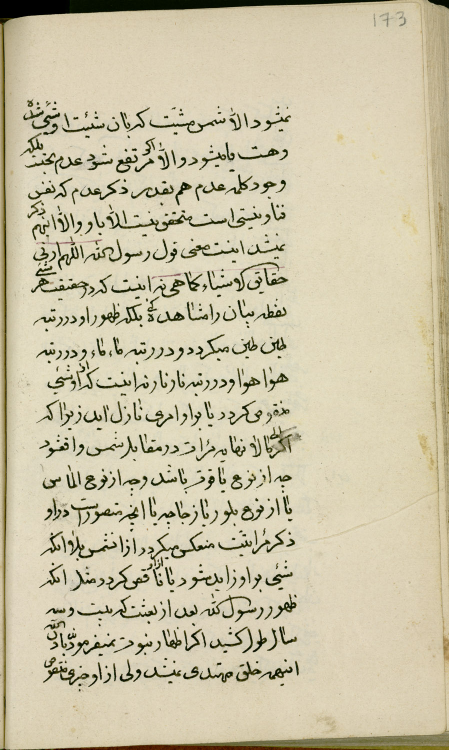 173
نمیشود الا شمس مشیت که بان شیئت او شیئ شده
وهست یا میشود والا اکر مرتفع شود عدم بحت بلکه
وجود کلمه عدم هم بقدر ذکر عدم که نفس
فنا و نیستی است متحقق نیست الا باو والا اینهم ذکر
نمیشد اینست معنی قول رسول الله اللهم ارنی
حقایق الاشیاء کما هی نه اینست که در حقیقت هر شیئ
نقطه بیان را مشاهده کنی بلکه ظهور او در رتبه
طین طین میکردد و در رتبه ماء ماء و در رتبه
هوا هوا و در رتبه نار نار نه اینست که از او شیئی
میکردد یا بر او امری نازل اید زیرا که
اکر الی ما لا نهایه مرآت در مقابل شمس واقع شود
چه از نوع یاقوت باشد و چه از نوع الماس
یا از نوع بلور یا زجاجه یا انچه متصور است در او
ذکر مرآتیت منعکس میکردد از ان شمس بلا انکه
شیئی بر او زاید شود یا از ان ناقص کردد مثل انکه
ظهور رسول الله بعد از بعثت که بیست و سه
سال طول کشید اکر اظهار نبوت نمیفرمود باذن الله
اینهمه خلق مهتدی نمیشد ولی از او چیزی ناقص